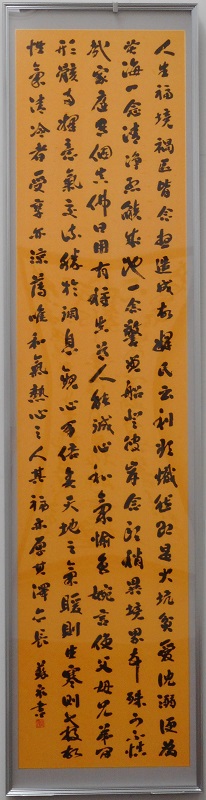 人生福境禍区皆念想造成故釋氏云利欲熾然即是火坑貪愛沈溺便為
苦海一念清淨烈焰成池一念警覺船登彼岸念頭稍異境界頓殊可不慎
哉家庭有個真佛日用有種真道人能誠心和氣愉色婉言使父母兄弟間
形骸兩釋意氣交流勝於調息觀心萬倍矣天地之氣暖則生寒則殺故
性氣清冷者受享亦涼薄唯和氣熱心之人其福亦厚其澤亦長 書